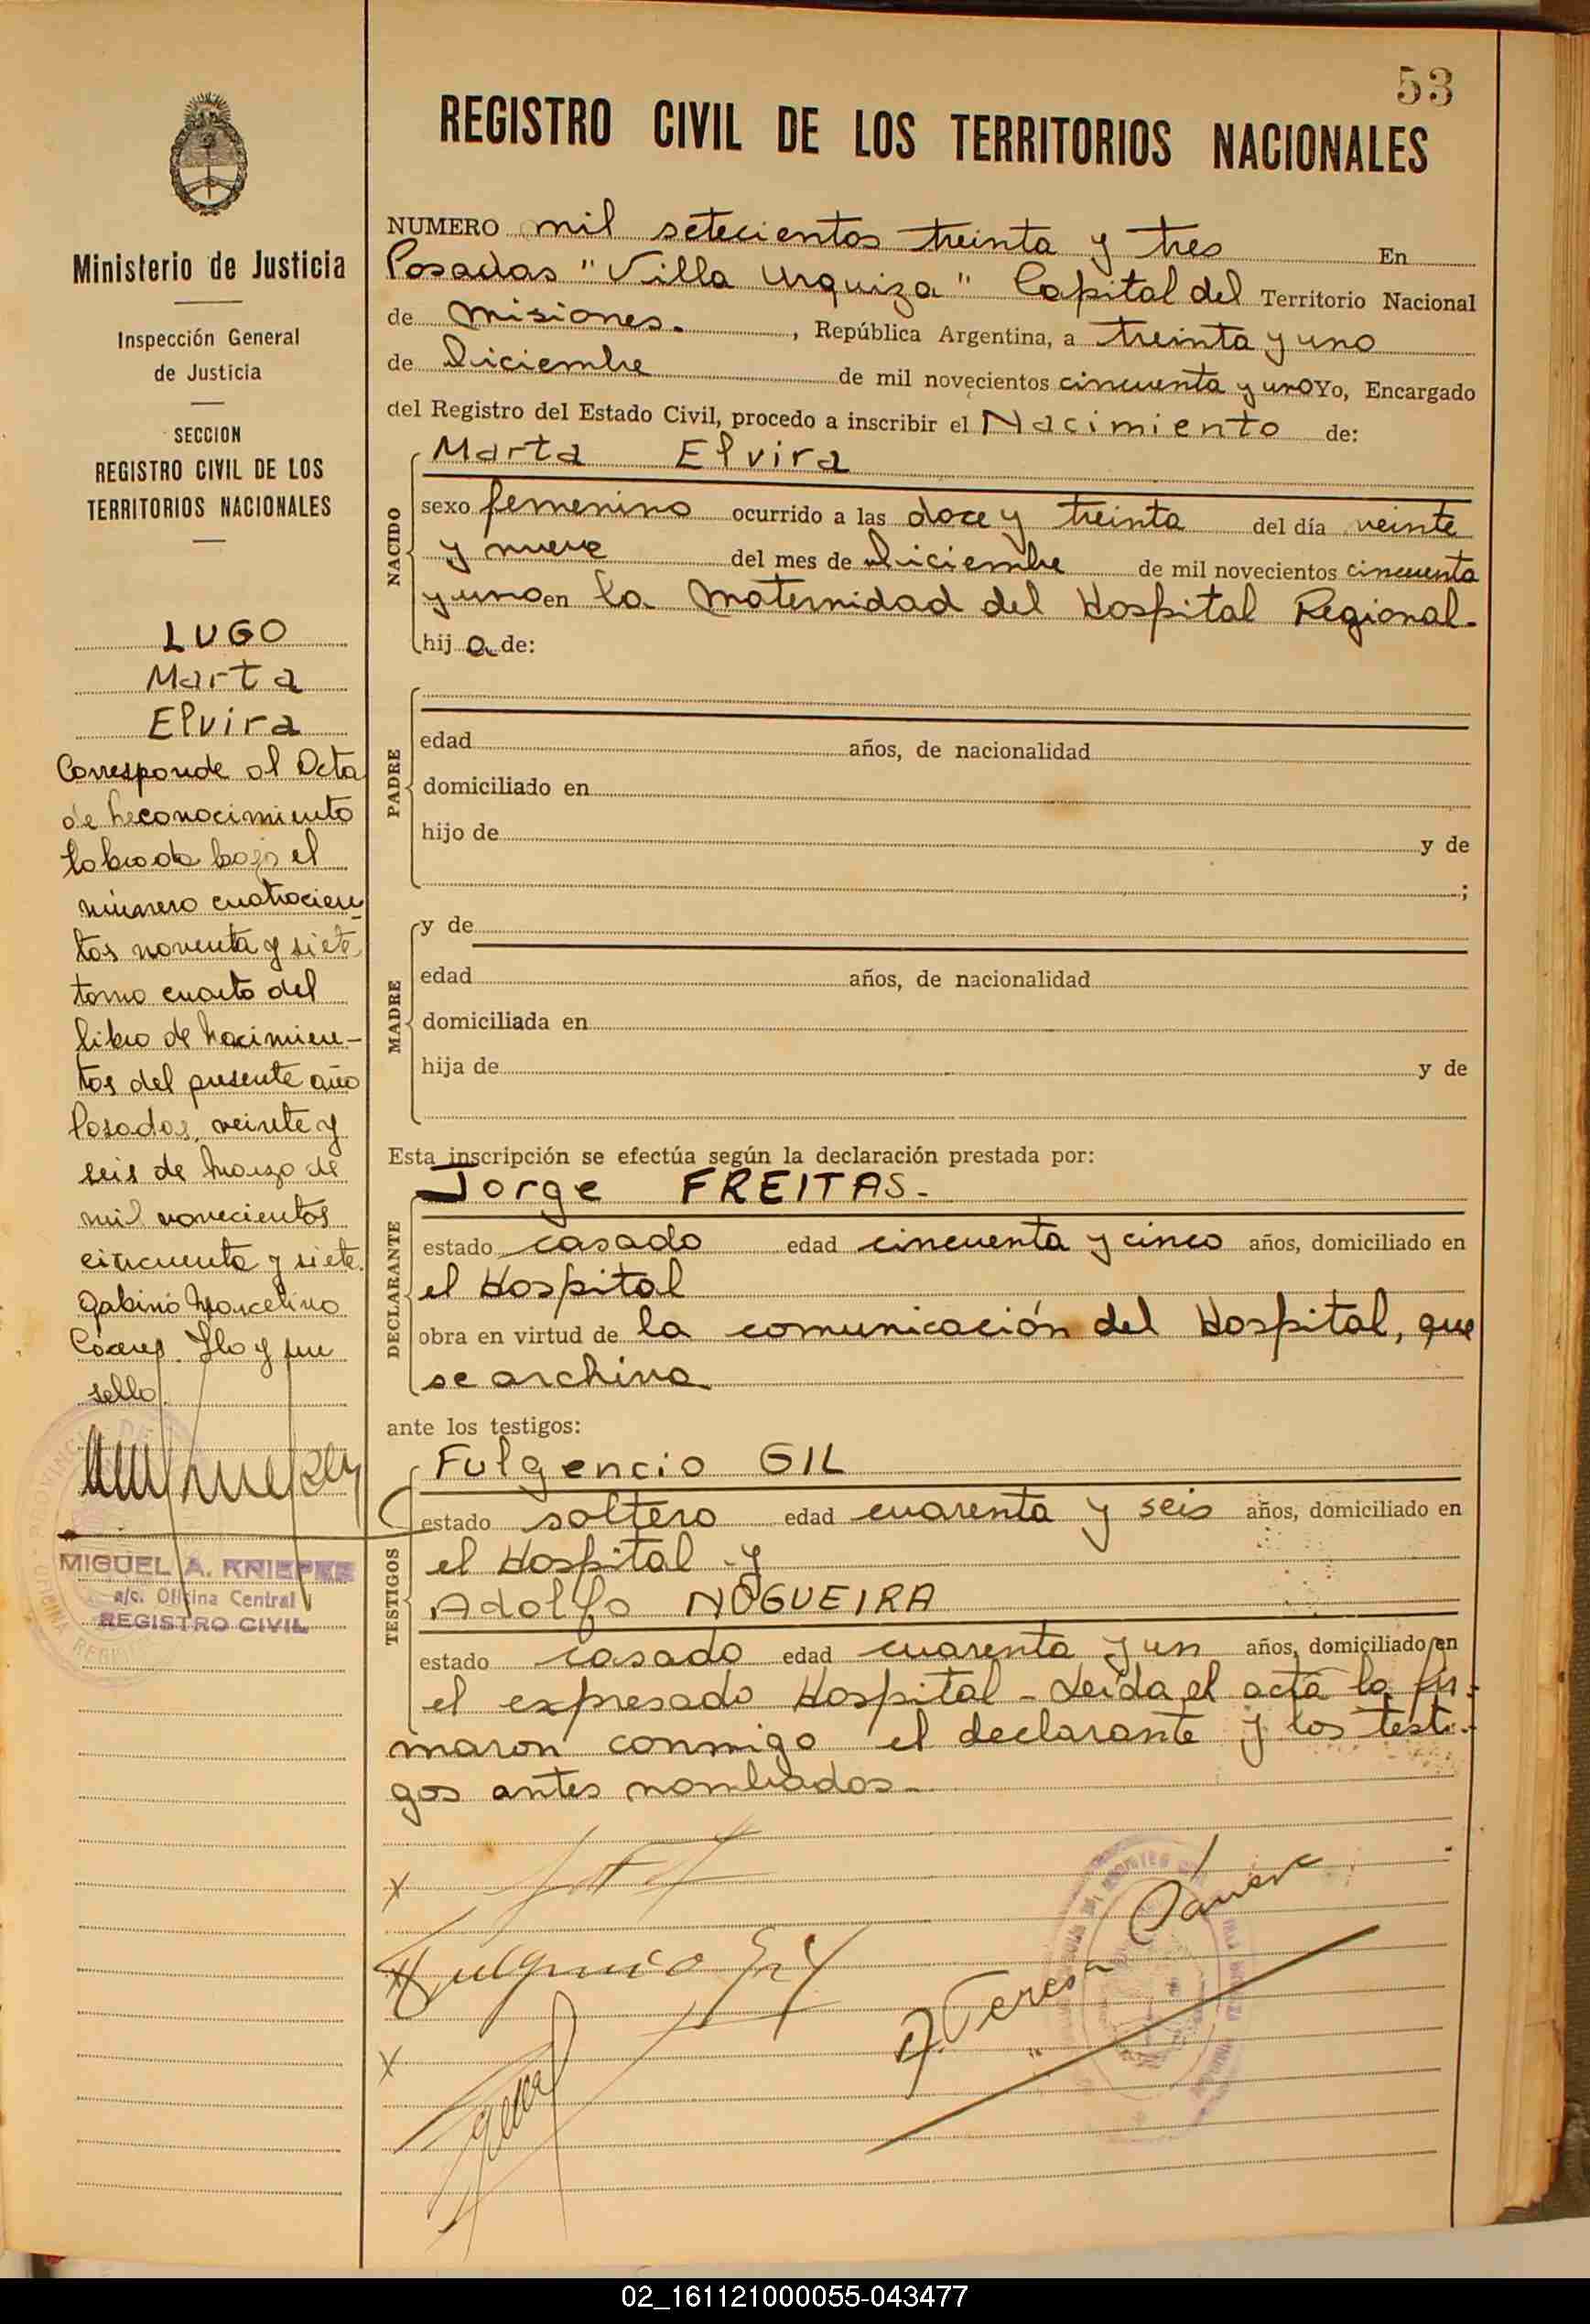 53
REGISTRO CIVIL DE LOS TERRITORIOS NACIONALES
Ministerio de Justicia
Inspección General
de Justicia
SECCION
REGISTRO CIVIL DE LOS
TERRITORIOS NACIONALES
LUGO
Marta
Elvira
Corresponde al Acta
de Reconocimiento
labrada bajo el
número cuatrocien-
tos noventa y siete
tomo cuarto del
libro de Nacimien-
tos del presente año
Posadas, veinte y
seis de Marzo de
mil novecientos
cincuenta y siete.
Gabino Marcelino
sello
MIGUEL A. KNIEPEE
a/c. Oficina Central
REGISTRO CIVIL
NUMERO mil setecientos treinta y tres En
Posadas "Villa Urquiza" Capital del Territorio Nacional
de Misiones. , República Argentina, a treinta y uno
de Diciembre de mil novecientos cincuenta y uno Yo, Encargado
del Registro del Estado Civil, procedo a inscribir el Nacimiento de:
Marta Elvira
NACIDO
sexo femenino ocurrido a las doce y treinta del día veinte
y nueve del mes de Diciembre de mil novecientos cincuenta
y uno en la Maternidad del Hospital Regional.
hij a de:
PADRE
edad años, de nacionalidad
domiciliado en
hijo de y de
;
MADRE
y de
edad años, de nacionalidad
domiciliada en
hija de y de
Esta inscripción se efectúa según la declaración prestada por:
Jorge FREITAS.-
DECLARANTE
estado casado edad cincuenta y cinco años, domiciliado en
el Hospital
obra en virtud de la comunicación del Hospital, que
se archiva
ante los testigos:
Fulgencio GIL
TESTIGOS
estado soltero edad cuarenta y seis años, domiciliado en
el Hospital y
Adolfo NOGUEIRA
estado casado edad cuarenta y un años, domiciliado en
el expresado Hospital - Leída el acta la fir-
maron conmigo el declarante y los testi-
gos antes nombrados -
x
x Fulgencio Gil
x
Teresa
02_161121000055-043477